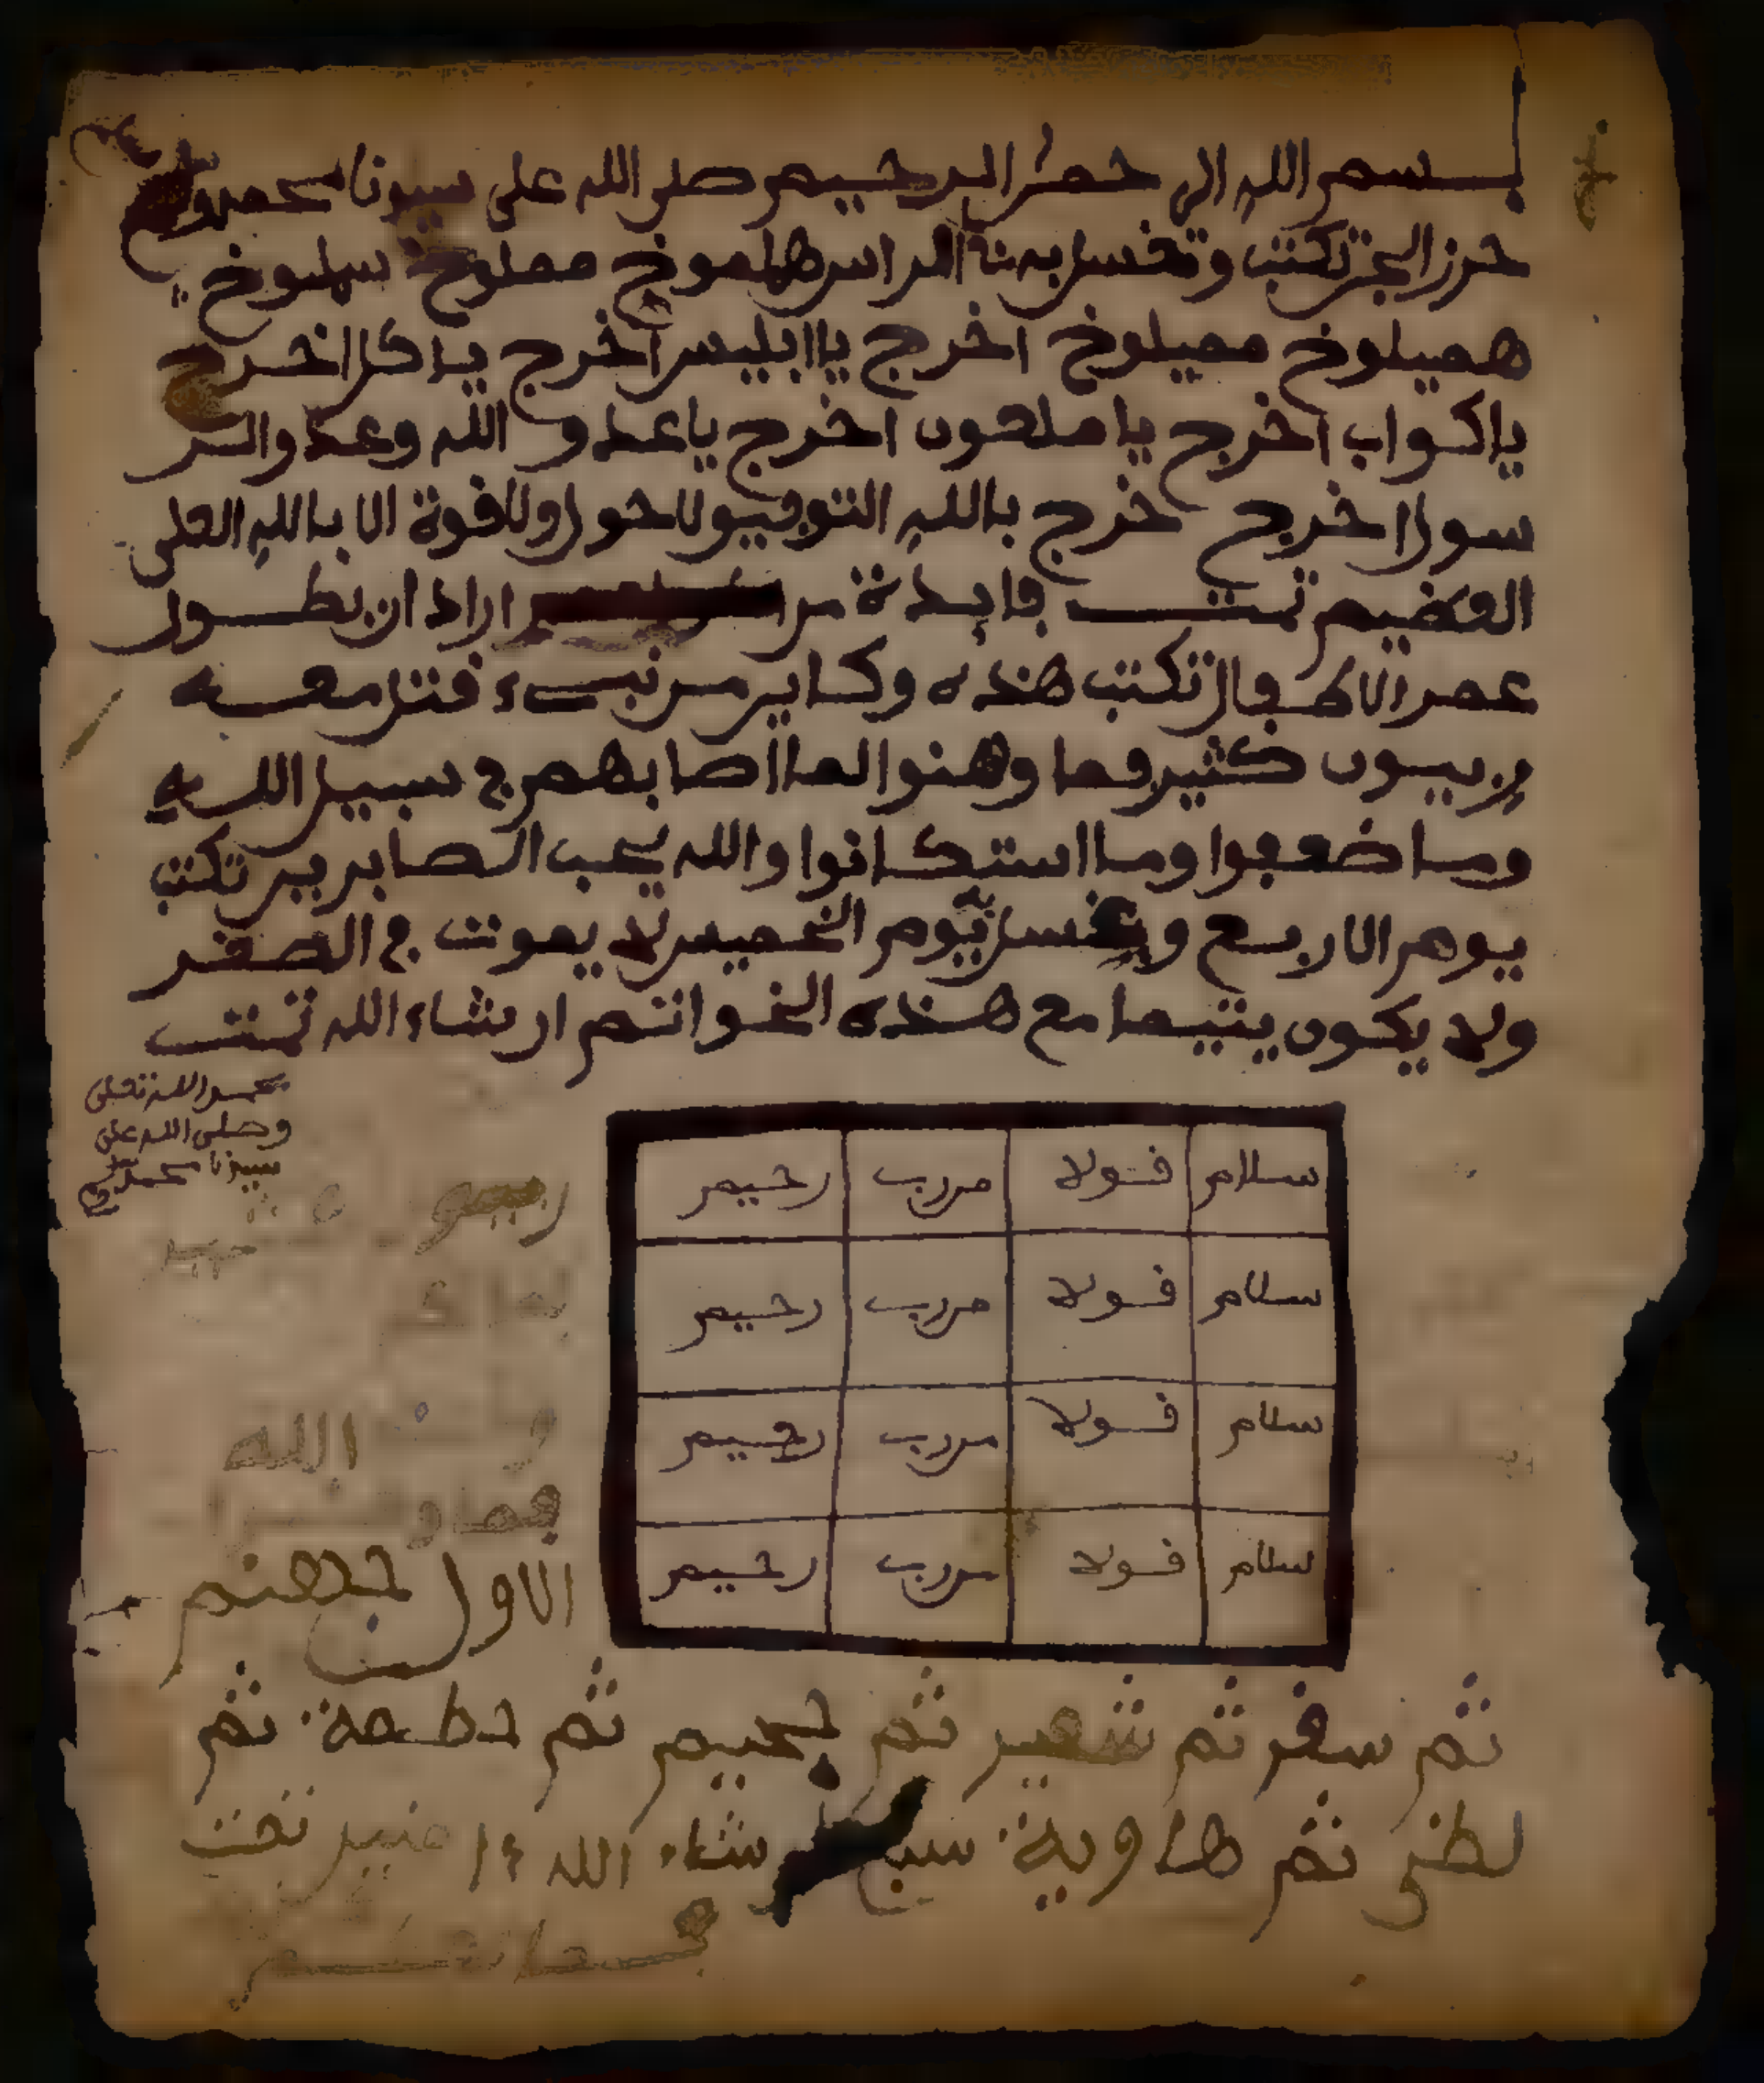 بسم الله الرحمن الرحيم صلى الله على سيدنا محمد
حرز الجن تكتب وتغسل به الراس هلموخ مملوخ سملوخ
هميلوخ مميلوخ اخرج يا ابليس اخرج يا كل اخرج
يا كواب اخرج يا ملعون اخرج يا عدو الله وعدو الر
سول اخرج خرج بالله التوفيق ولا حول ولا قوة الا بالله العلى
العضيم تمت فايدة من اراد ان يطور
عمر الاطفال تكتب هذه وكاين من نبىء قتل معه
ربيون كثير فما وهنوا لما اصابهم في سبيل الله
وما ضعفوا وما استكانوا والله يحب الصابرين تكتب
يوم الاربع ويغسل به يوم الخميس لا يموت في الصغر
ولا يكون يتيما مع هذه الخواتم ان شاء الله تمت
بحمد الله تعلى
وصلى الله على
سيدنا محمد
سلام قولا من رب رحيم
سلام قولا من رب رحيم
سلام قولا من رب رحيم
سلام قولا من رب رحيم
الله
فما
الاول جهنم
ثم سقر ثم شعير ثم جحيم ثم حطمة ثم
لظى ثم هاوية شاء الله ءامنين تمت